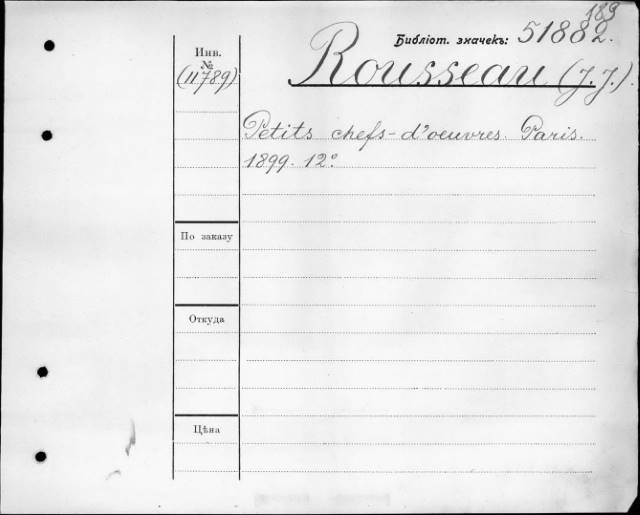 189
Библіот. значекъ: 51882.
Инв.
№
(11789)
Rousseau (J. J.).
Petits chefs-d'oeuvres. Paris.
1899. 12°
По заказу
Откуда
Цѣна